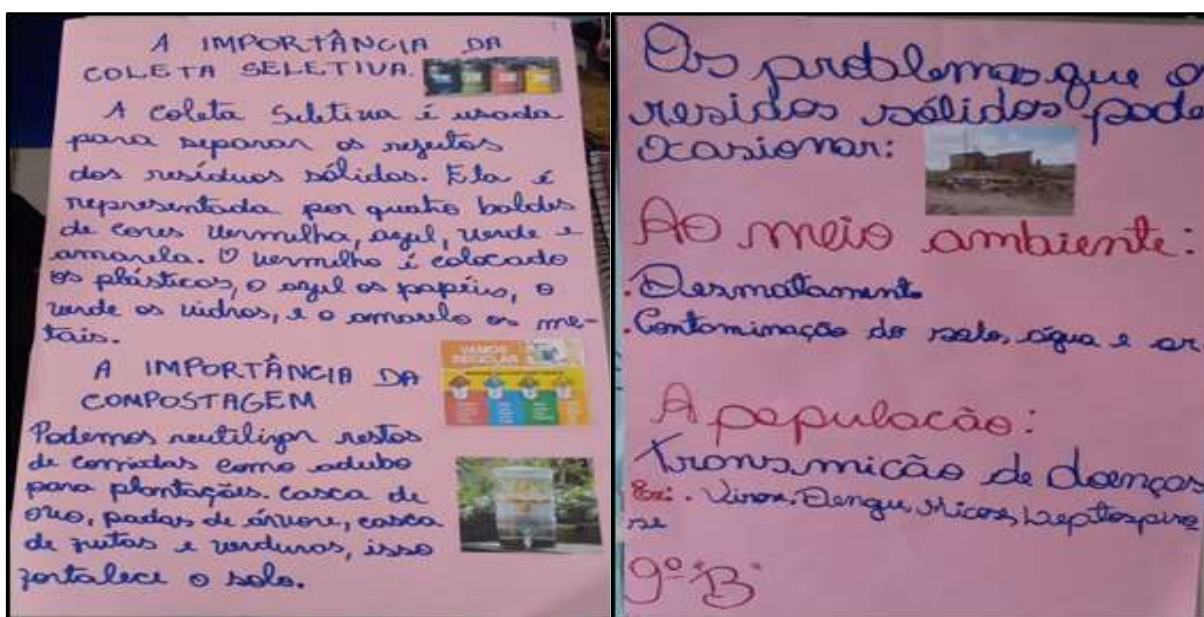 A IMPORTÂNCIA DA
COLETA SELETIVA.
A coleta Seletiva é usada
para separar os rejeitos
dos resíduos sólidos. Ela é
representada por quatro baldes
de cores vermelha, azul, verde e
amarela. O vermelho é colocado
os plásticos, o azul os papéis, o
verde os vidros, e o amarelo os me-
tais.
VAMOS
RECICLAR
A IMPORTÂNCIA DA
COMPOSTAGEM
Podemos reutilizar restos
de comidas como adubo
para plantações. casca de
ovo, podas de árvore, casca
de frutas e verduras, isso
fortalece o solo.
Os problemas que o
residos sólidos pode
Ocasionar:
Ao meio ambiente:
. Desmatamento
. Contaminação do solo, água e ar.
A população:
Transmicão de doenças
Ex: . Virose, Dengue, Micose, Leptospiro
se
9º "B"